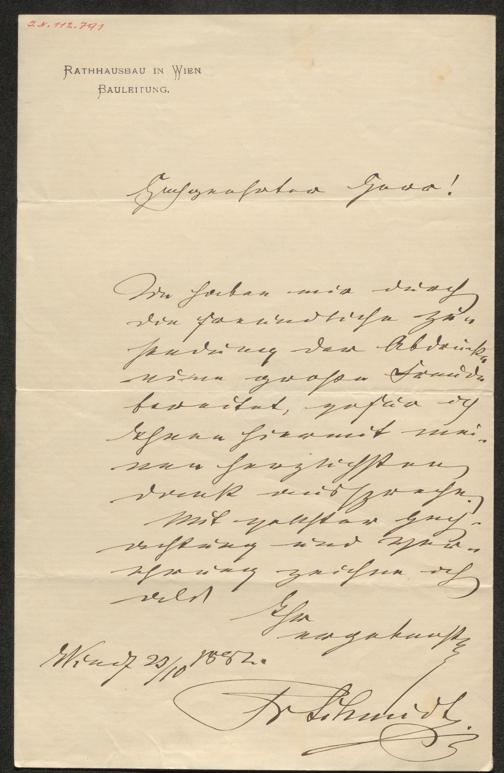 I.N. 112.791
RATHHAUSBAU IN WIEN
BAULEITUNG.
Hochgeehrter Herr!
Sie haben mir durch
die freundliche Zu-
sendung der Abdrücke
eine große Freude
bereitet, wofür ich
Ihnen hiermit mei-
nen herzlichsten
Dank ausspreche.
Mit vollster Hoch-
achtung und Ver-
ehrung zeichne ich
Ihr
ergebenster
Wien 23/10 1882.
Fr Schmidt